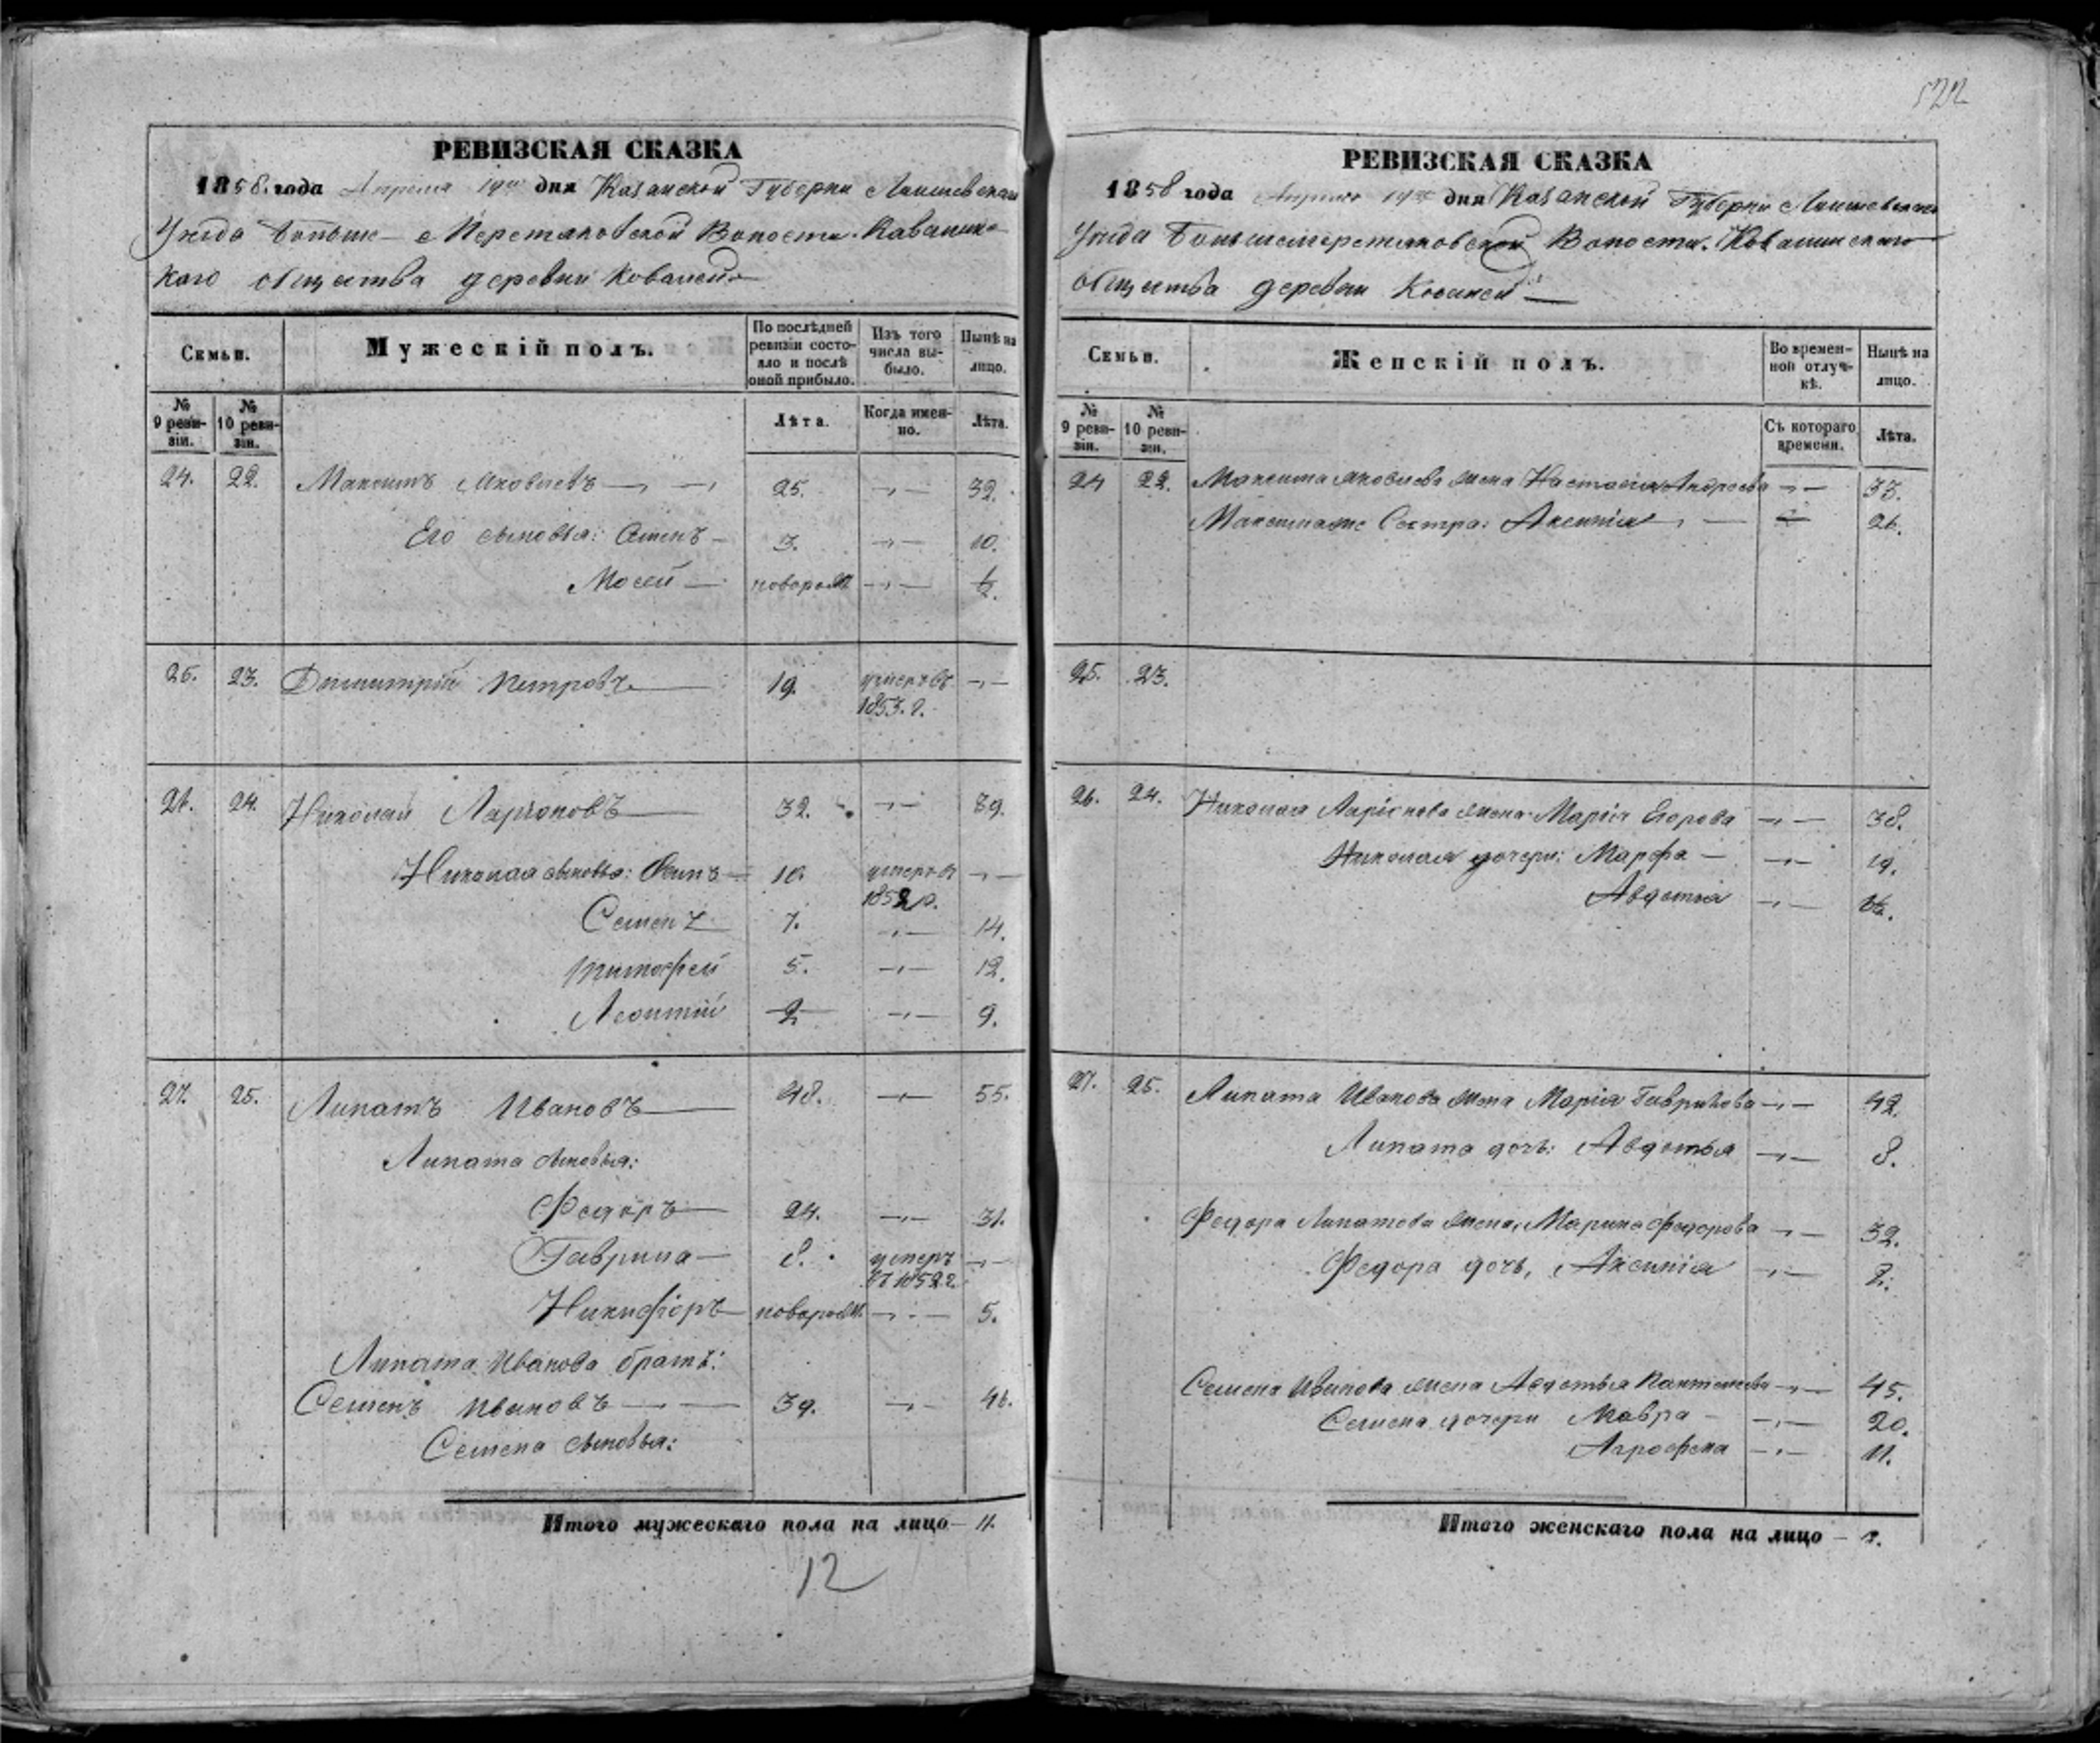 522
РЕВИЗСКАЯ СКАЗКА
1858. года Апреля 19го дня Казанской Губернии Лаишевскаго
Уезда Больше-е Керетяковской Волости. Ковалин-
каго общества деревни Ковалей
Семьи.
Мужескій полъ.
По послѣдней ревизіи состо-яло и послѣ оной прибыло.
Изъ того числа вы-было.
Нынѣ на лицо.
№ 9 реви-зіи.
№ 10 реви-зіи.
Лѣта.
Когда имен-но.
Лѣта.
24. 22. Максимъ Яковлевъ 25. 32.
Его сыновья: 3. 10.
Мосей новорожд 1/2.
25. 23. Дмитрій Петровъ 19. умеръ въ
1853. г.
26. 24. Николай Ларіоновъ 32. 39.
Николая сыновья: 10. умеръ въ
1852 г.
Семенъ 7. 14.
Тимофей 5. 12.
Леонтій 2 9.
27. 25. Липатъ Ивановъ 48. 55.
Липата сыновья:
Федоръ 24. 31.
Гаврила 8. умеръ
въ 1852 г.
Никифоръ новорожд. 5.
Липата Иванова братъ:
Семенъ Ивановъ 39. 46.
Семена сыновья:
Итого мужескаго пола на лицо 11.
12
РЕВИЗСКАЯ СКАЗКА
1858 года Апреля 19го дня Казанской Губернии Лаишевскаго
Уезда Большекеретяковской Волости. Ковалинскаго
общества деревни Ковалей
Семьи.
Женскій полъ.
Во времен-ной отлуч-кѣ.
Нынѣ на лицо.
№ 9 реви-зіи.
№ 10 реви-зіи.
Съ котораго времени.
Лѣта.
24 22. Максима Яковлева жена Настасія Андреева 33.
Максима Сестра: Аксинія 26.
25. 23.
26. 24. Николая Ларіонова жена Марія Егорова 38.
Николая дочери: Марфа 19.
Авдотья
27. 25. Липата Иванова жена Марія Гаврилова 42.
Липата дочь: Авдотья 8.
Федора Липатова жена, Марина Федорова 32.
Федора дочь, Аксинія 2.
Семена Иванова жена Авдотья Пантелеева 45.
Семена дочери Мавра 20.
Агрофена 11.
Итого женскаго пола на лицо